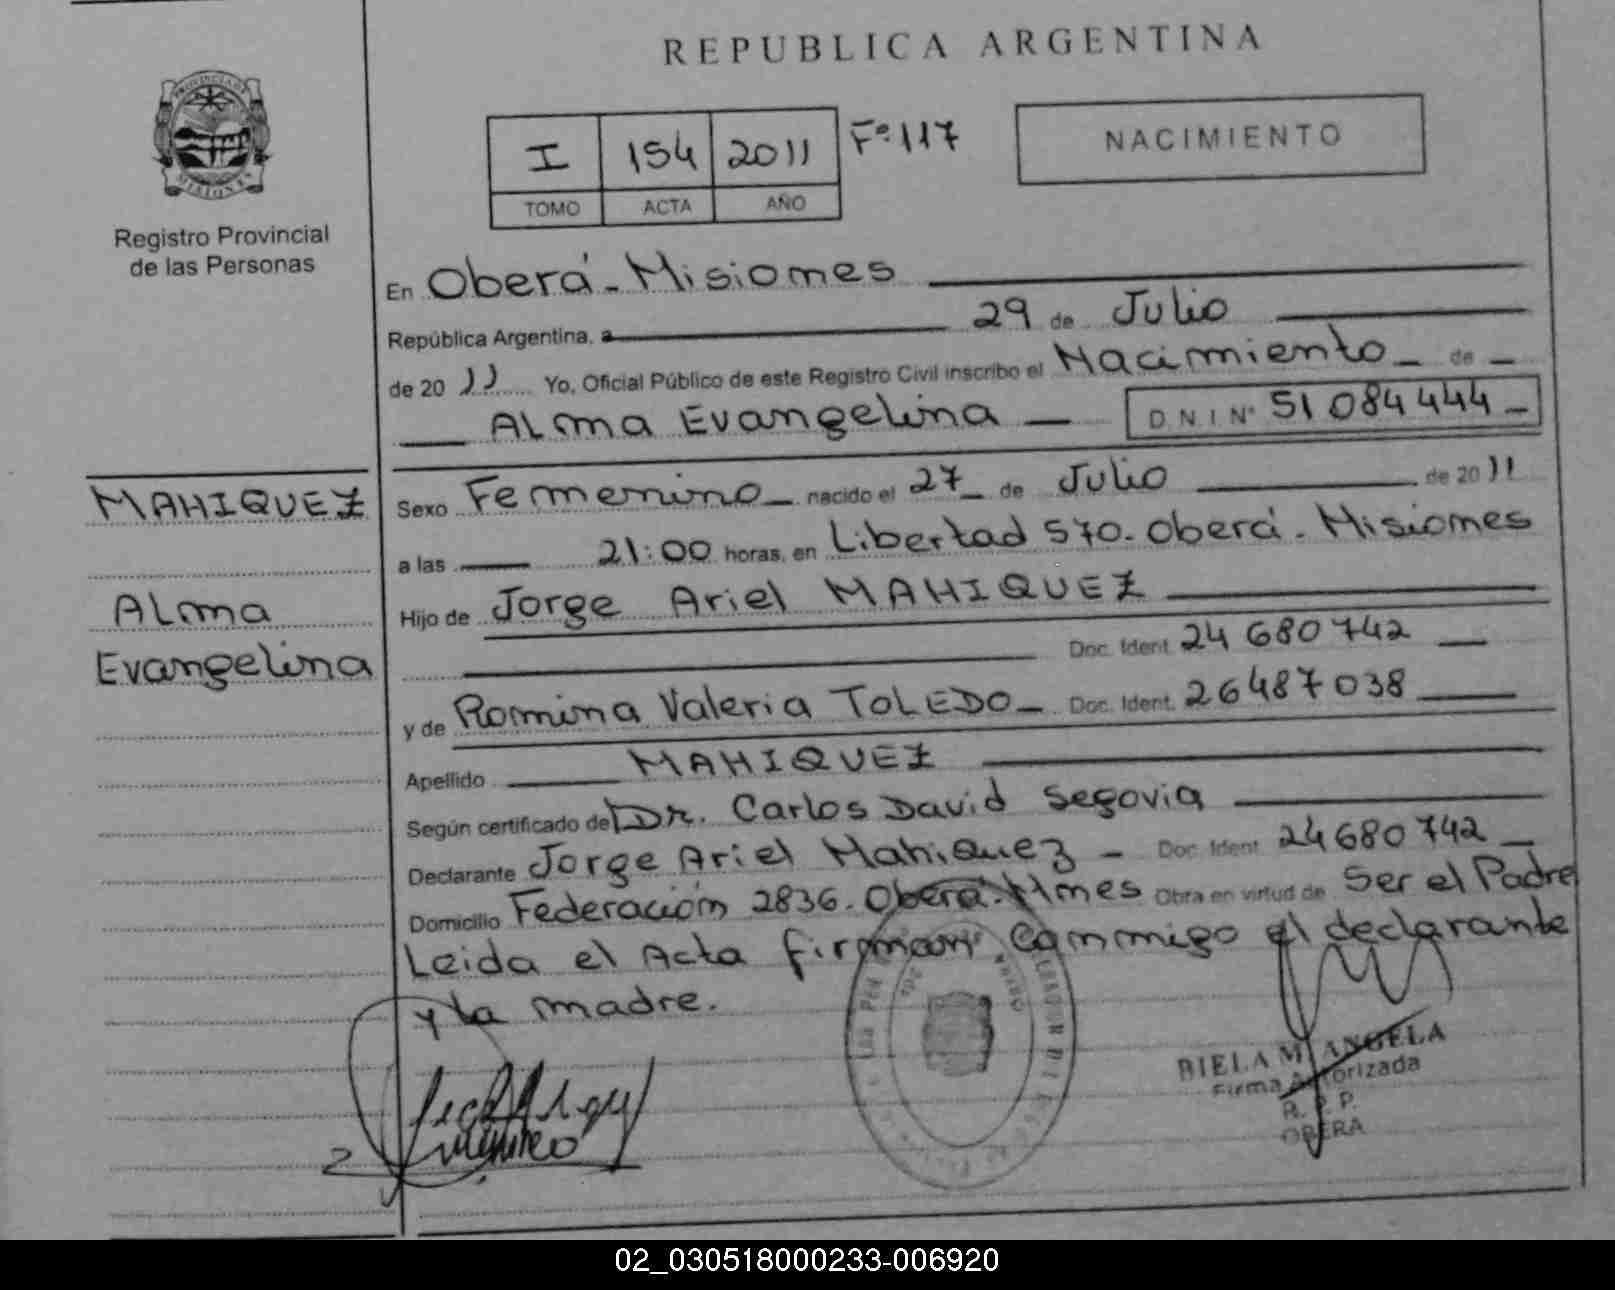 REPUBLICA ARGENTINA
PROVINCIA DE MISIONES
Registro Provincial
de las Personas
I 154 2011 Fº 117
TOMO ACTA AÑO
NACIMIENTO
En Oberá - Misiones
República Argentina, a 29 de Julio
de 20 11 Yo, Oficial Público de este Registro Civil inscribo el Nacimiento de
Alma Evangelina D.N.I Nº 51 084 444
MAHIQUEZ
Alma
Evangelina
Sexo Femenino nacido el 27 de Julio de 20 11
a las 21:00 horas, en Libertad 570. Oberá. Misiones
Hijo de Jorge Ariel MAHIQUEZ
Doc. Ident. 24 680 742
y de Romina Valeria TOLEDO Doc. Ident. 26487038
Apellido MAHIQUEZ
Según certificado de Dr. Carlos David Segovia
Declarante Jorge Ariel Mahiquez Doc. Ident. 24680742
Domicilio Federación 2836. Oberá. Mnes Obra en virtud de Ser el Padre
Leida el Acta firman conmigo el declarante
y la madre.
BIELA M ANGELA
Firma Autorizada
R. P. P.
OBERA
02_030518000233-006920